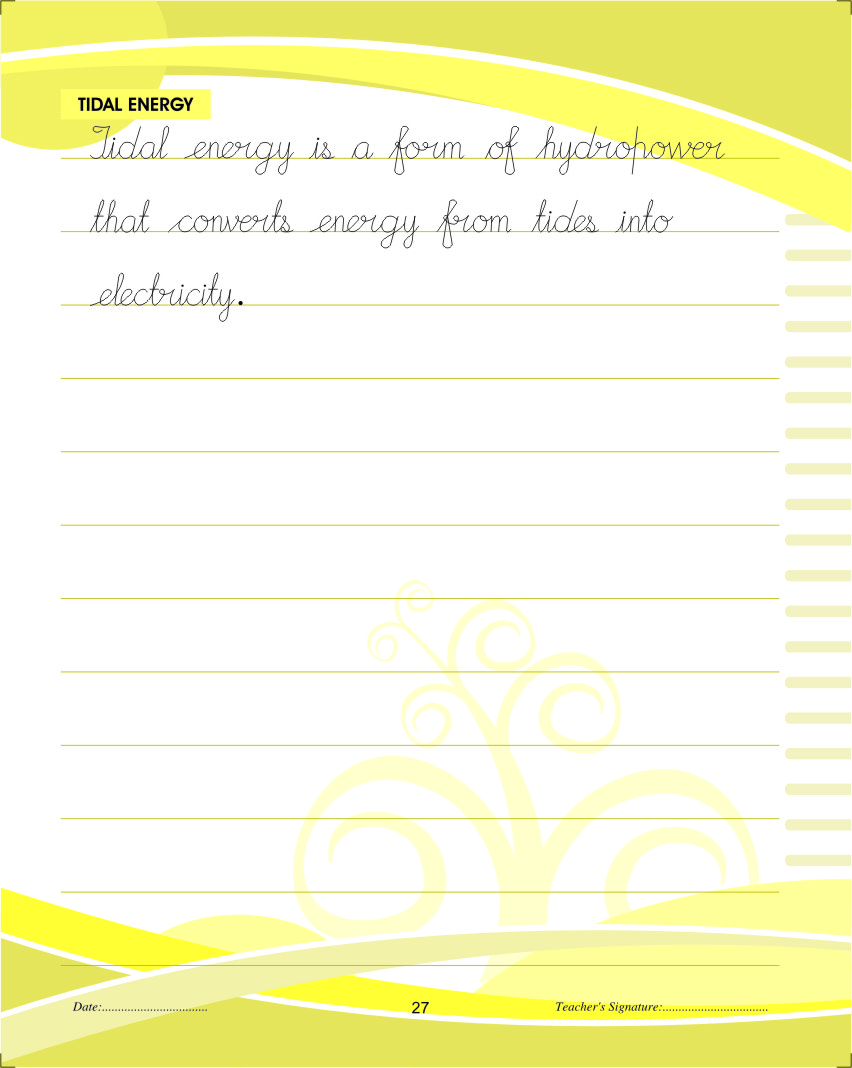 TIDAL ENERGY
Tidal energy is a form of hydropower
that converts energy from tides into
electricity.
Date:.................................
27
Teacher's Signature:.................................